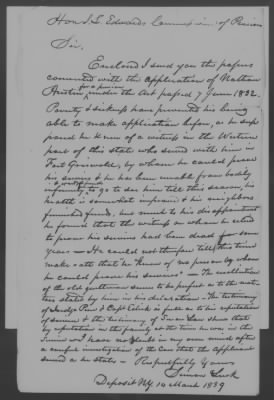 Hon J. L. Edwards Commissioner of Pensions
Sir,
Enclosed I send you the papers
connected with the application of Nathan
Austin for a pension under the Act passed 7 June 1832.
Poverty & sickness have prevented his being
able to make application before, as he sup
posed he knew of a witness in the Western
part of this state who served with him in
Fort Griswold, by whom he could prove
his service & he has been unable from bodily
infirmity & want of funds to go to see him till this season, his
health is somewhat improved & his neighbors
furnished funds, but much to his disappointment
he found that the witness on whom he relied
to prove his service had been dead for some
years — He could not therefore till this time
make oath that he "knew of no person by whom
he could prove his services" — The recollection
of the old gentleman seems to be perfect as to the mat
ters stated by him in his declaration — The testimony
of Judge & Capt is full as to his reputation
of service & the testimony of shows that
by reputation in the family at the time he was in the
service & I have no doubt in my own mind after
a careful investigation of the case that the applicant
served as he states — Respectfully yours
Lusk
Deposit NY 14 March 1839